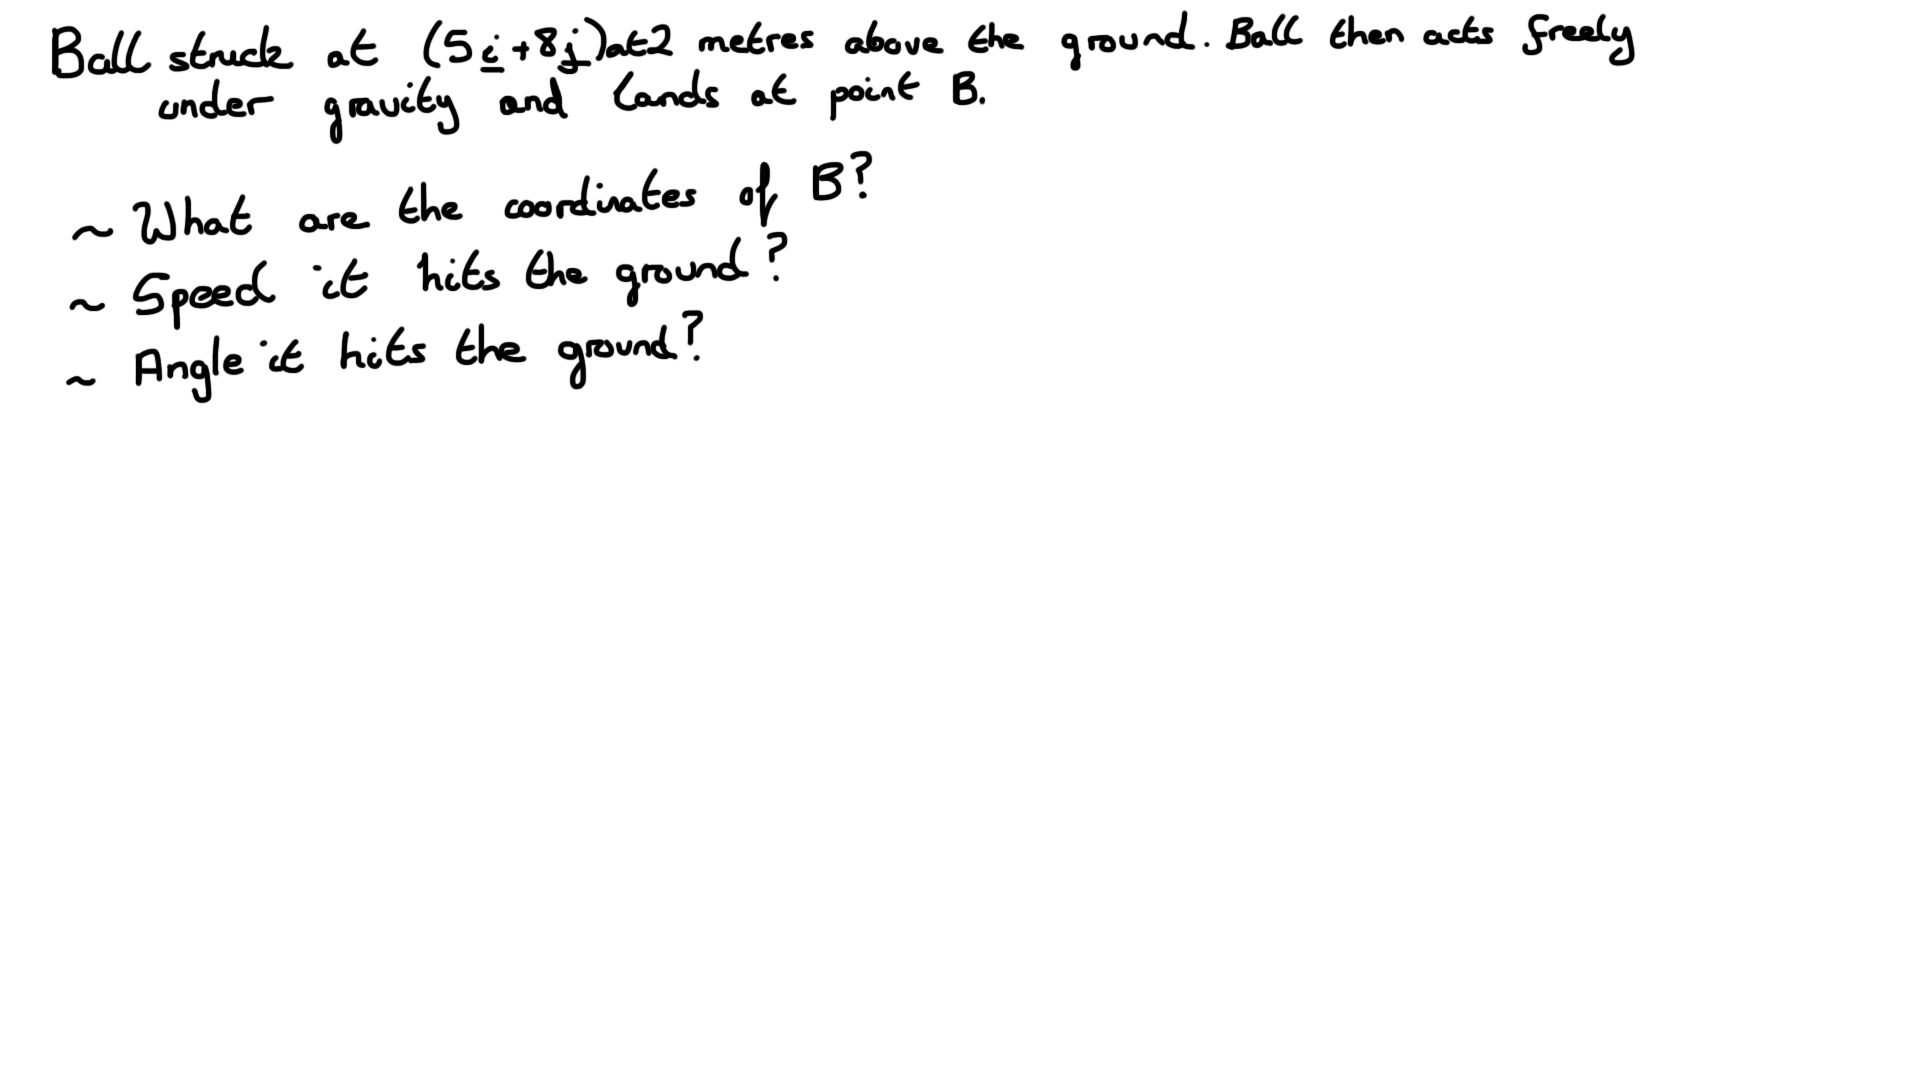 Ball struck at (5i+8j)at2 metres above the ground. Ball then acts freely
under gravity and lands at point B.
~ What are the coordinates of B?
~ Speed it hits the ground?
~ Angle it hits the ground?